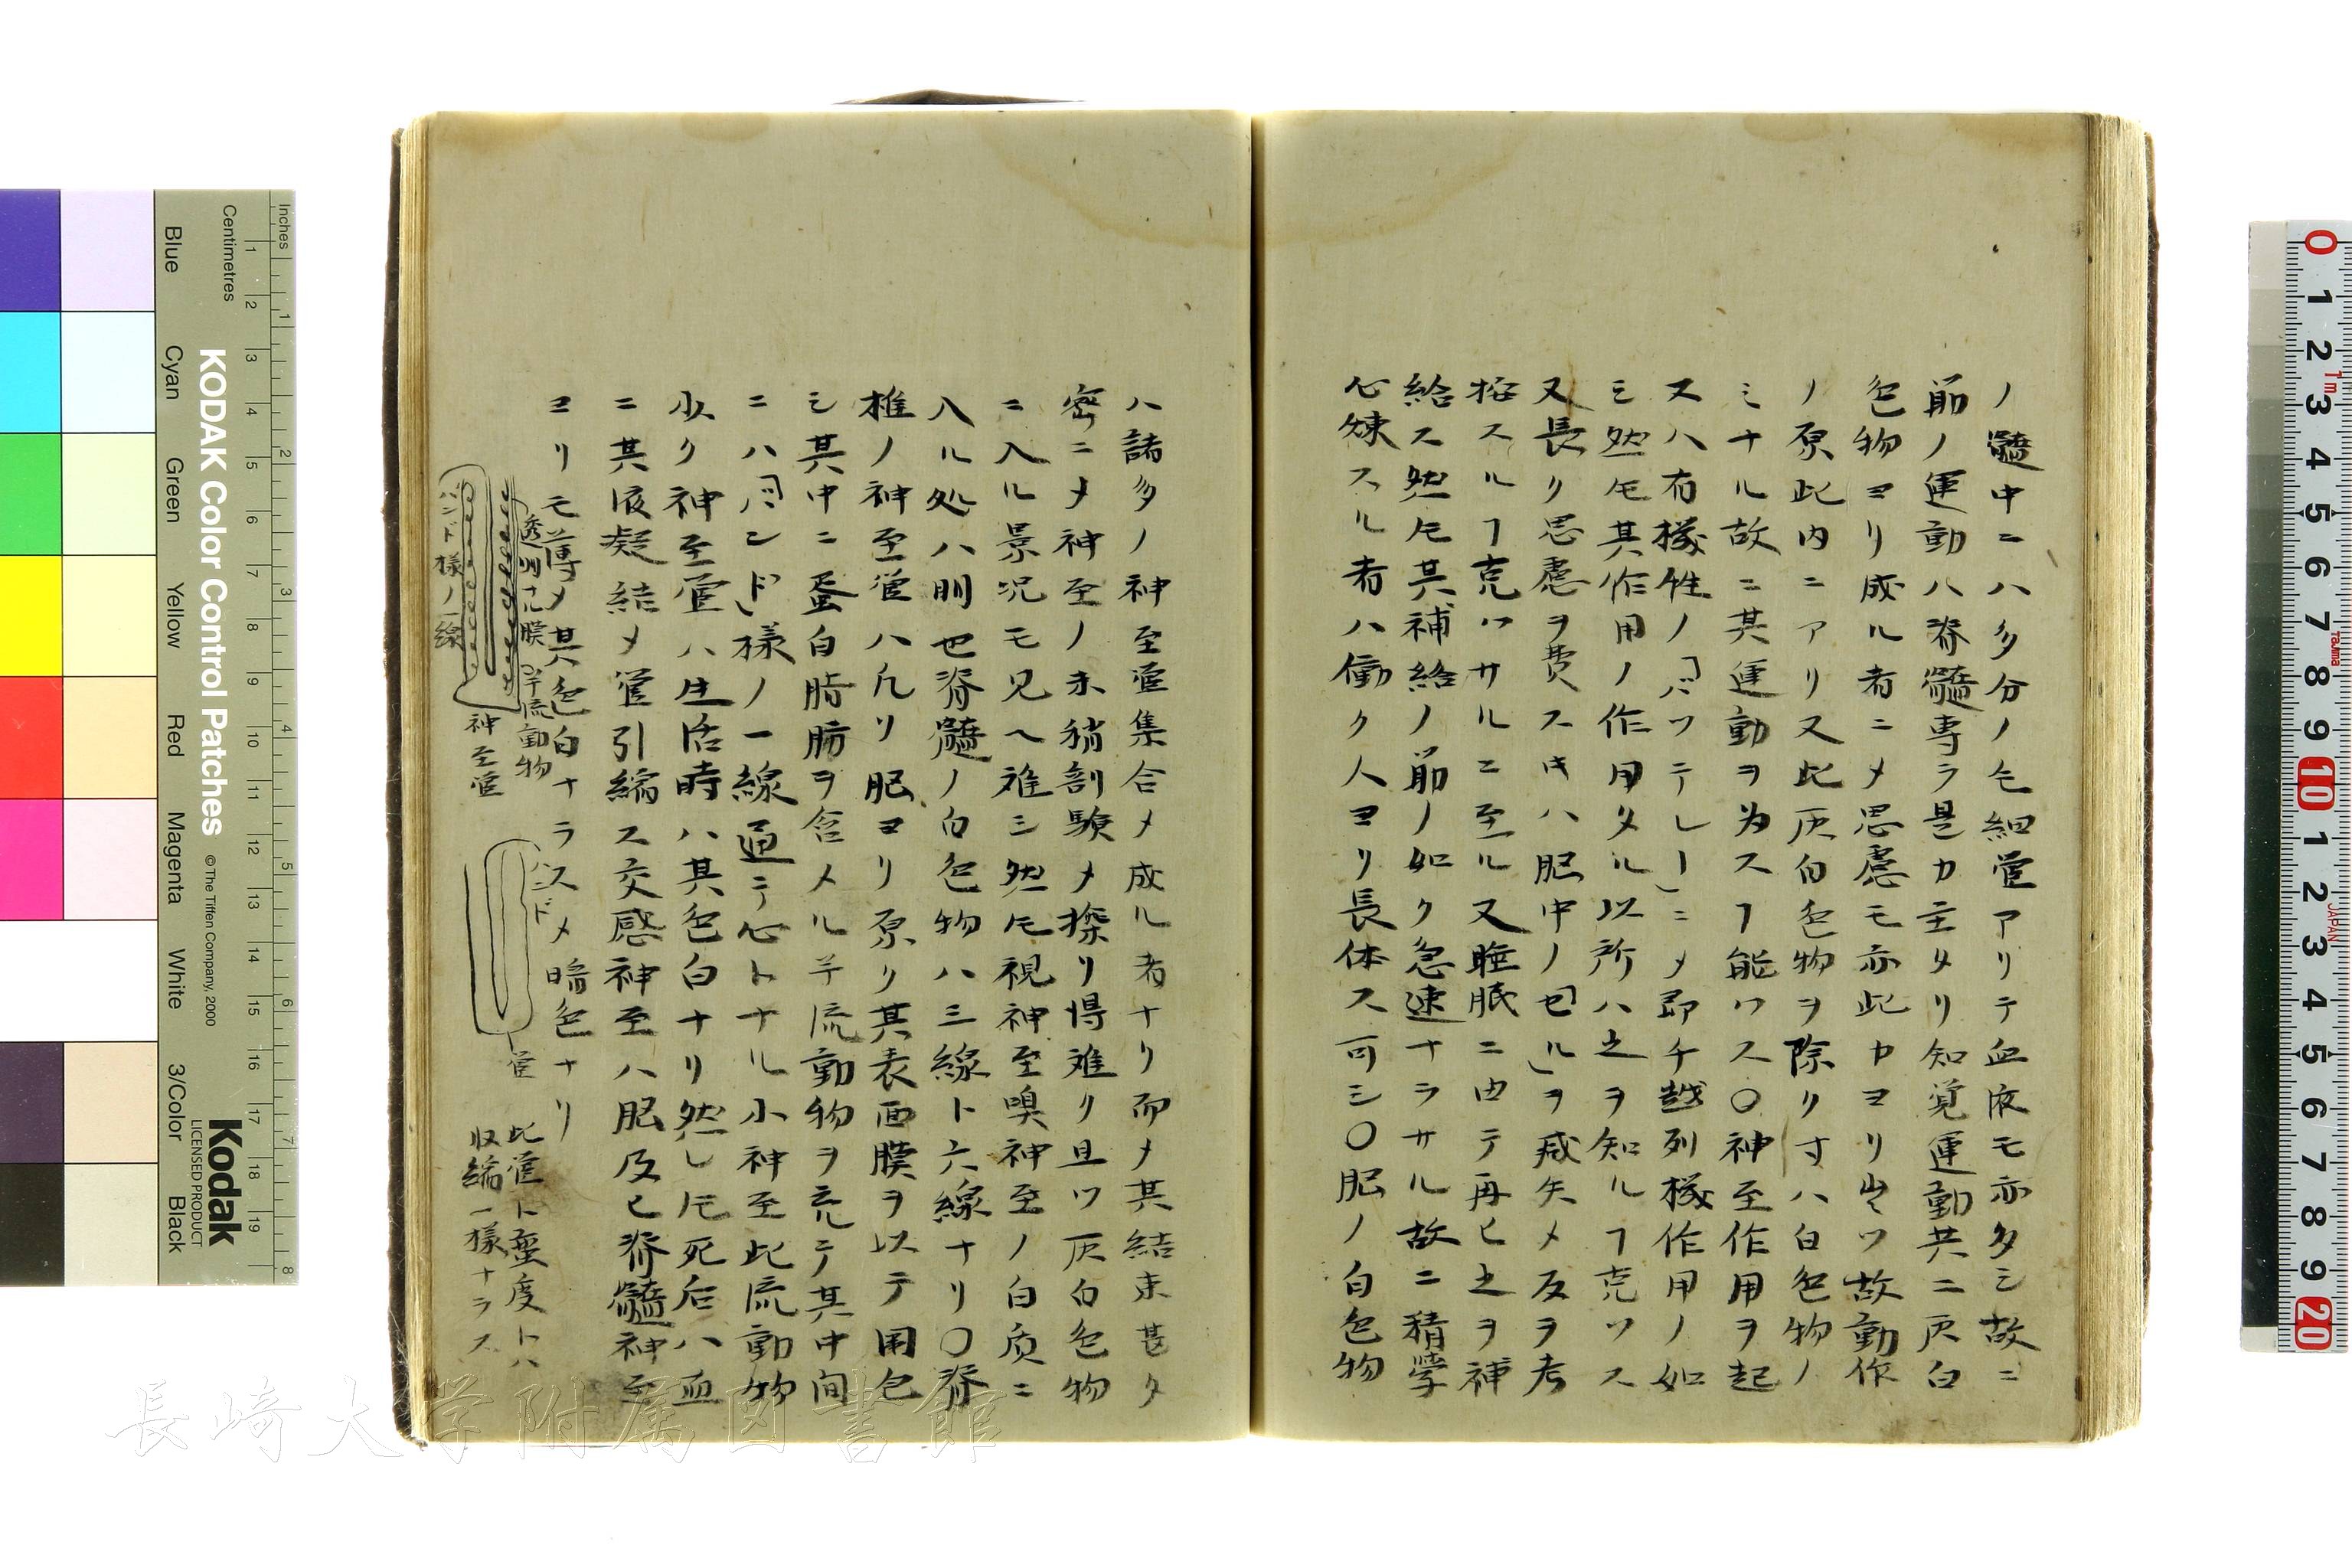 ノ髓中ニハ多分ノ毛細管アリテ血液モ亦タシ故ニ
筋ノ運動ハ脊髓専ラ是カ主タリ知覚運動共ニ灰白
色物ヨリ成ル者ニメ思慮モ亦此カヨリ出ツ故動作
ノ原此内ニアリ又此灰白色物ヲ除リ寸ハ白色物ノ
ミナル故ニ其運動ヲ為スヿ能ワス〇神至作用ヲ起
スハ有機性ノ「バッテレー」ニメ即チ越列機作用ノ如
シ然𪜈其作用ノ作用タル以所ハ之ヲ知ルヿ克ワス
又長リ思慮ヲ費スキハ脳中ノ「セル」ヲ減失メ反ヲ考
按スルヿ克ワサルニ至ル又睡眠ニ由テ再ヒ之ヲ補
給ス然𪜈其補給ノ筋ノ如ク急速ナラサル故ニ精学
心煉スル者ハ働ク人ヨリ長休ス可シ〇脳ノ白色物
ハ諸多ノ神至管集合メ成ル者ナリ而メ其結束甚タ
密ニメ神至ノ末稍剖験メ探リ得難リ且ツ灰白色物
ニ入ル景况モ見ヘ難シ然𪜈視神至嗅神至ノ白质ニ
入ル処ハ明也脊髓ノ白色物ハ三線ト六線ナリ〇脊
椎ノ神至管ハ凡リ脳ヨリ原リ其表面膜ヲ以テ囲包
シ其中ニ蛋白脂肪ヲ含メル半流動物ヲ充テ其中间
ニハ「バンド」様ノ一線通テ心トナル小神至此流動物
少ク神至管ハ生活時ハ其色白ナリ然レ𪜈死后ハ血
ニ其液凝結メ管引縮ス交感神至ハ脳及ヒ脊髓神至
ヨリモ薄メ其色白ナラスメ暗色ナリ
透明ナル膜
半流動物
バンド様ノ一線
神至管
バンド
管
此管ト蛮度トハ
収縮一様ナラス
KODAK Color Control Patches
© The Tiffen Company, 2000
Kodak
LICENSED PRODUCT
Inches
Centimetres
Blue
Cyan
Green
Yellow
Red
Magenta
White
3/Color
Black
1 2 3 4 5 6 7 8 9 10 11 12 13 14 15 16 17 18 19
1 2 3 4 5 6 7 8
0 1 2 3 4 5 6 7 8 9 10 1 2 3 4 5 6 7 8 9 20
1m
JAPAN
長崎大学附属図書館